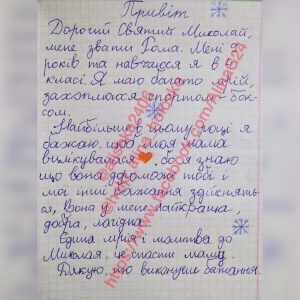 Привіт
Дорогий Святий Миколай,
мене звати Рома. Мені 9
років та навчаюся я в 4
класі. Я маю багато мрій,
захоплююся спортом - бок-
сом.
Найбільше в цьому році я
бажаю, щоб моя мама
вилікувалася, бо я знаю
що вона допоможе тобі і
мої інші бажання здіснять-
ся. Вона у мене найкраща,
добра, лагідна.
Єдина мрія і молитва до
Миколая, це спасти маму.
Дякую, що виконуєш бажання.